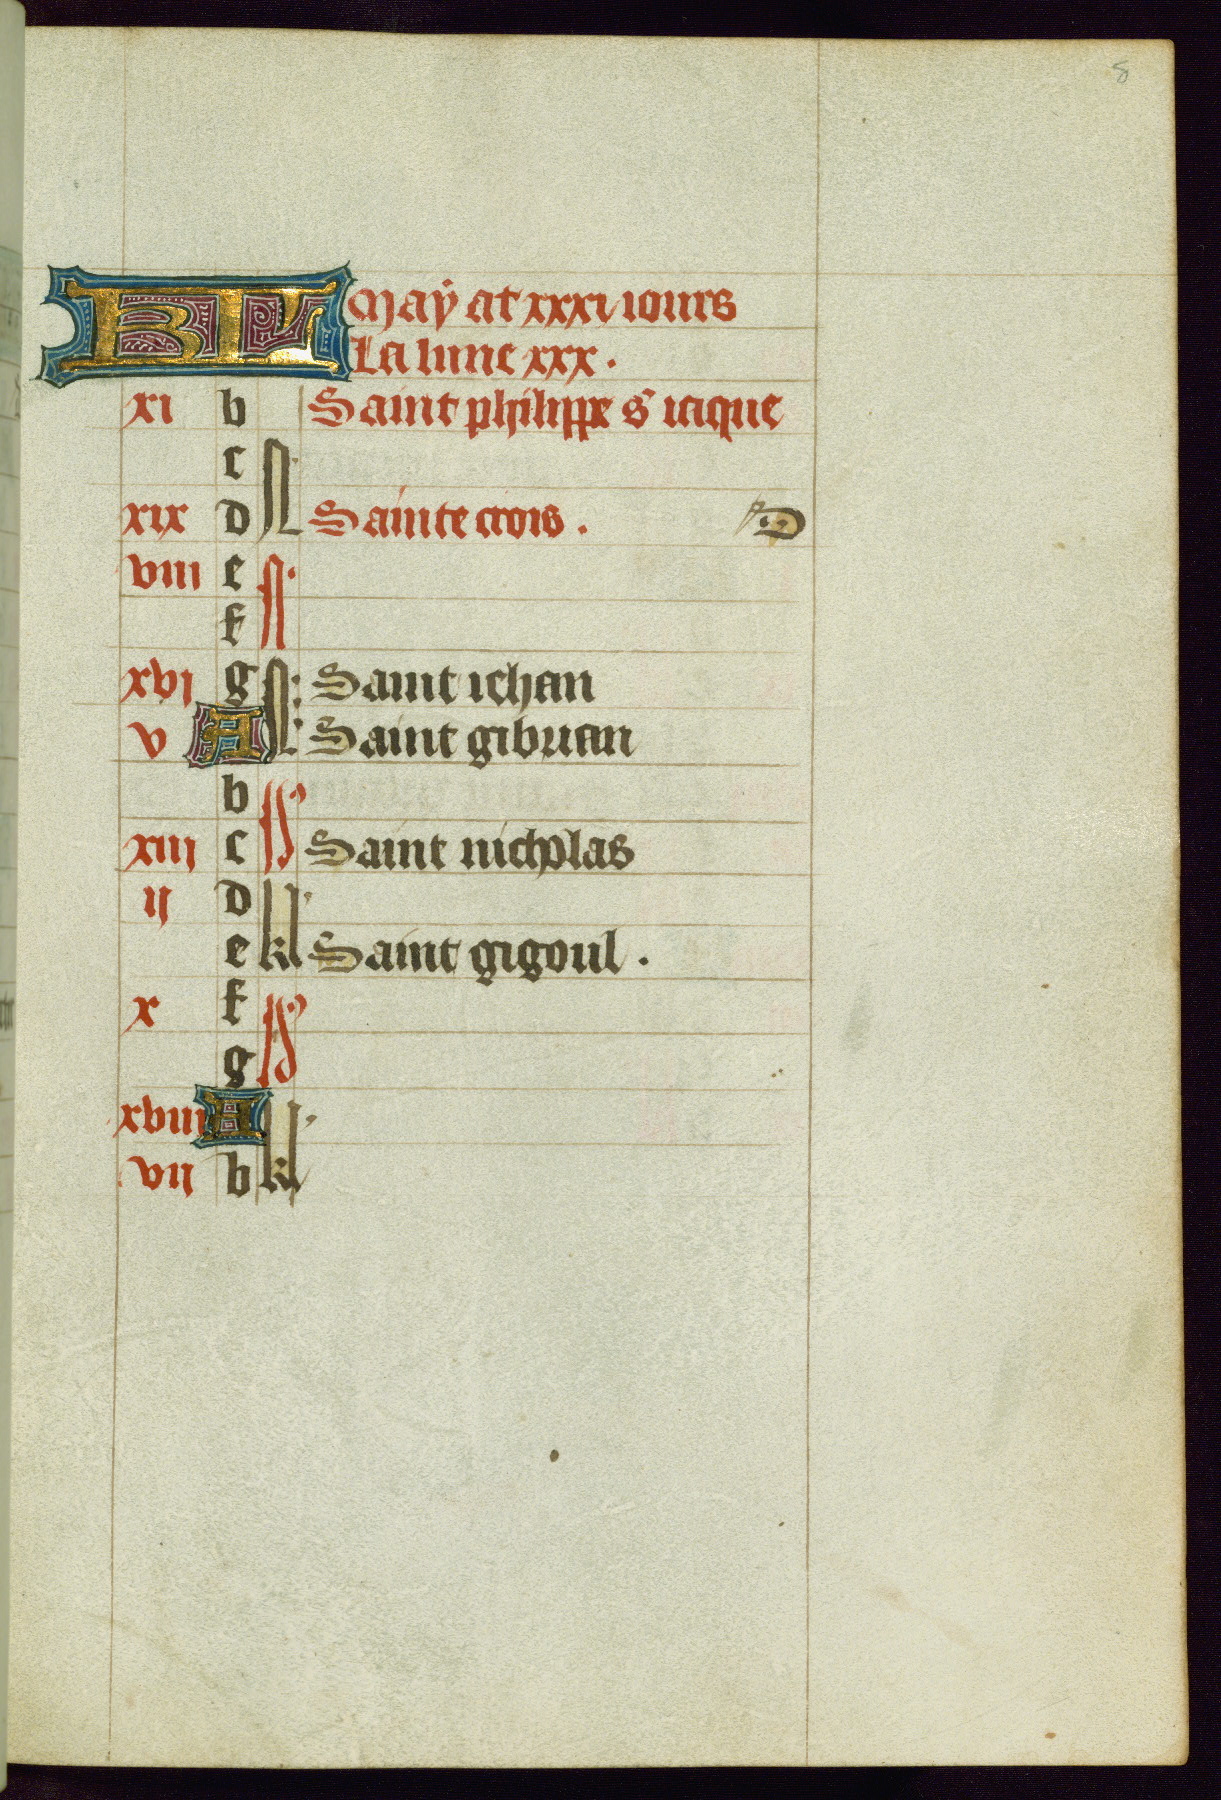 8
KL May at xxxi iours
La lune xxx.
xi b Saint philippe s iaque
c N
xix d Sainte crois . D
viii e N
f
xvi g N Saint iehan
v A Saint gibrian
b Id
xiii c Saint nicholas
ii d kl
e Saint gigoul .
x f Id
g
xviii A kl
vii b